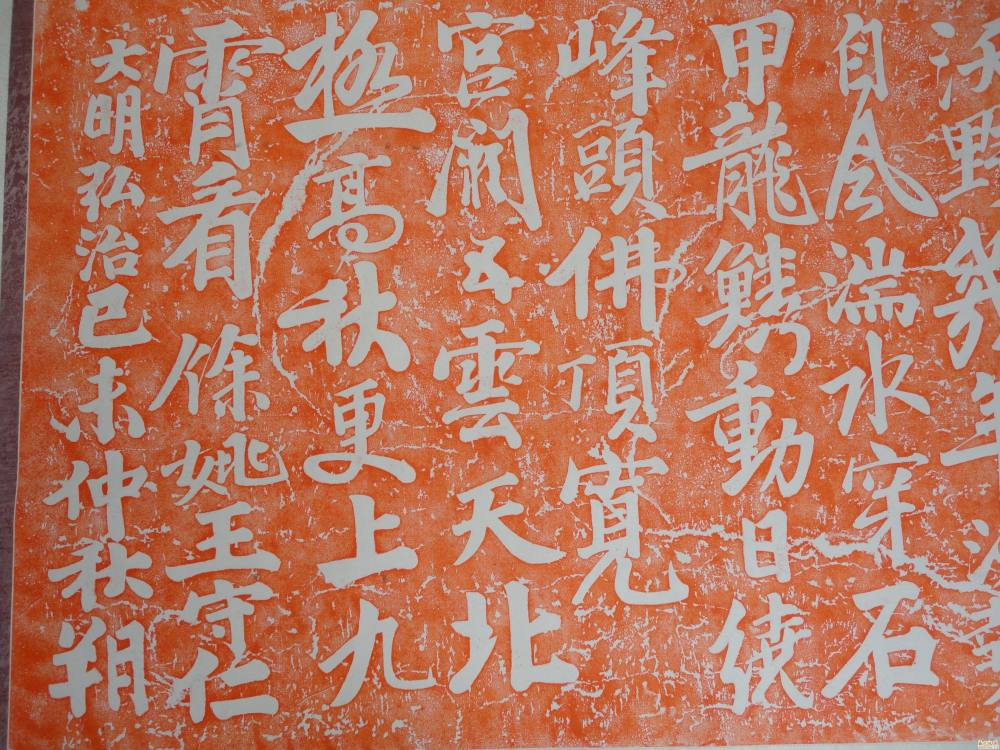 沃野幾年沙勢
自風湍水穿石
甲龍鱗動日繞
峰頭佛頂寬
宮闕五雲天北
極高秋更上九
霄看 餘姚王守仁
大明弘治己未仲秋朔